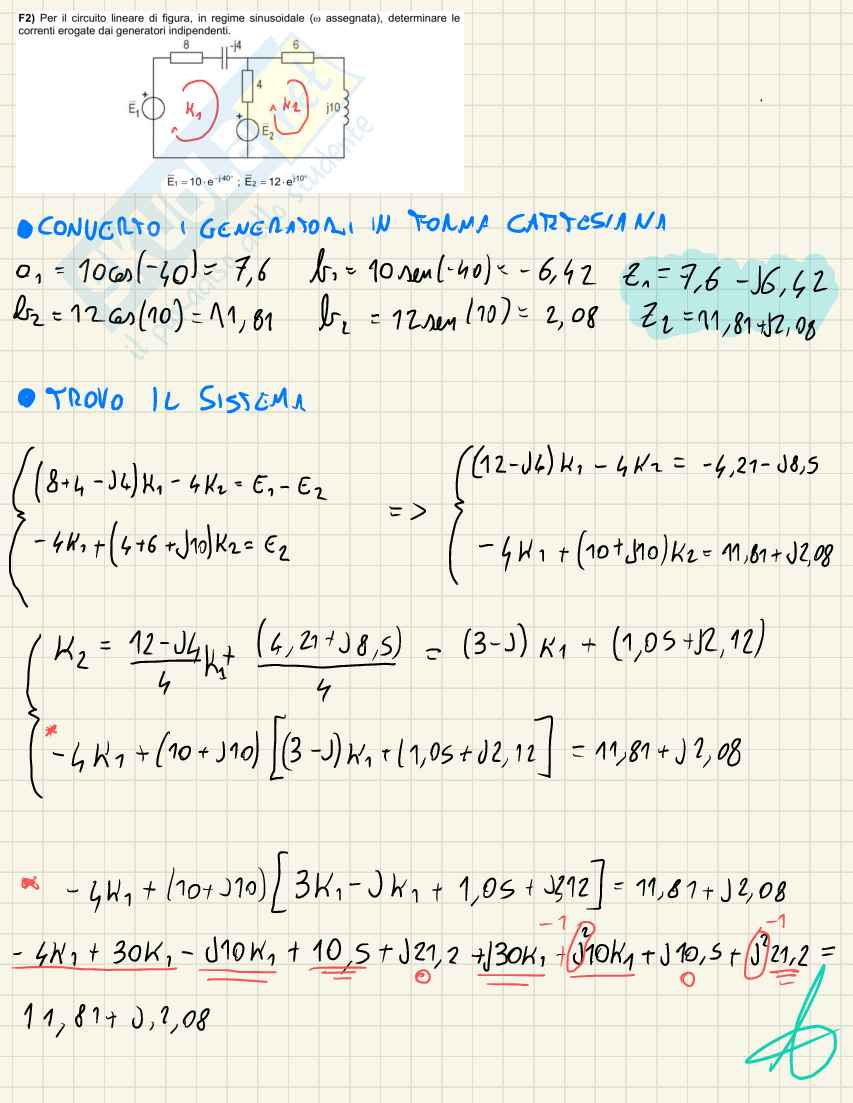 F2) Per il circuito lineare di figura, in regime sinusoidale (ω assegnata), determinare le
correnti erogate dai generatori indipendenti.
8 -j4 6
4
Ē₁ K₁ K₂ j10
Ē₂
Ē₁ = 10·e^(-j40°) ; Ē₂ = 12·e^(j10°)
• CONVERTO I GENERATORI IN FORMA CARTESIANA
a₁ = 10cos(-40) = 7,6 b₁ = 10 sen(-40) = -6,42 Z₁ = 7,6 - J6,42
b₂ = 12 cos(10) = 11,81 b₂ = 12 sen(10) = 2,08 Z₂ = 11,81 + J2,08
• TROVO IL SISTEMA
(8+4-J4)K₁ - 4K₂ = E₁ - E₂ => (12-J4)K₁ - 4K₂ = -4,21 - J8,5
-4K₁ + (4+6+J10)K₂ = E₂ -4K₁ + (10+J10)K₂ = 11,81 + J2,08
K₂ = (12-J4)/4 K₁ + (4,21+J8,5)/4 = (3-J)K₁ + (1,05+J2,12)
* -4K₁ + (10+J10)[(3-J)K₁ + (1,05+J2,12] = 11,81 + J2,08
* -4K₁ + (10+J10)[3K₁ - JK₁ + 1,05 + J2,12] = 11,81 + J2,08
-1 -1
-4K₁ + 30K₁ - J10K₁ + 10,5 + J21,2 + J30K₁ + J²10K₁ + J10,5 + J²21,2 =
11,81 + J,2,08